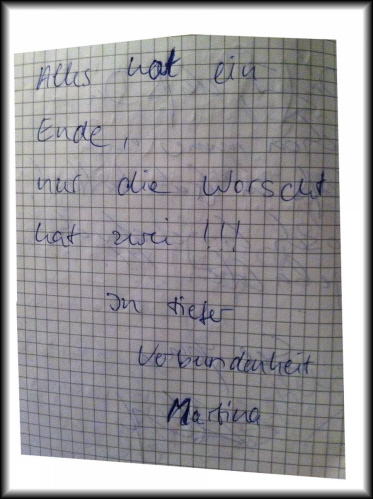 Alles hat ein
Ende,
nur die Worscht
hat zwei !!!
In tiefer
Verbundenheit
Martina